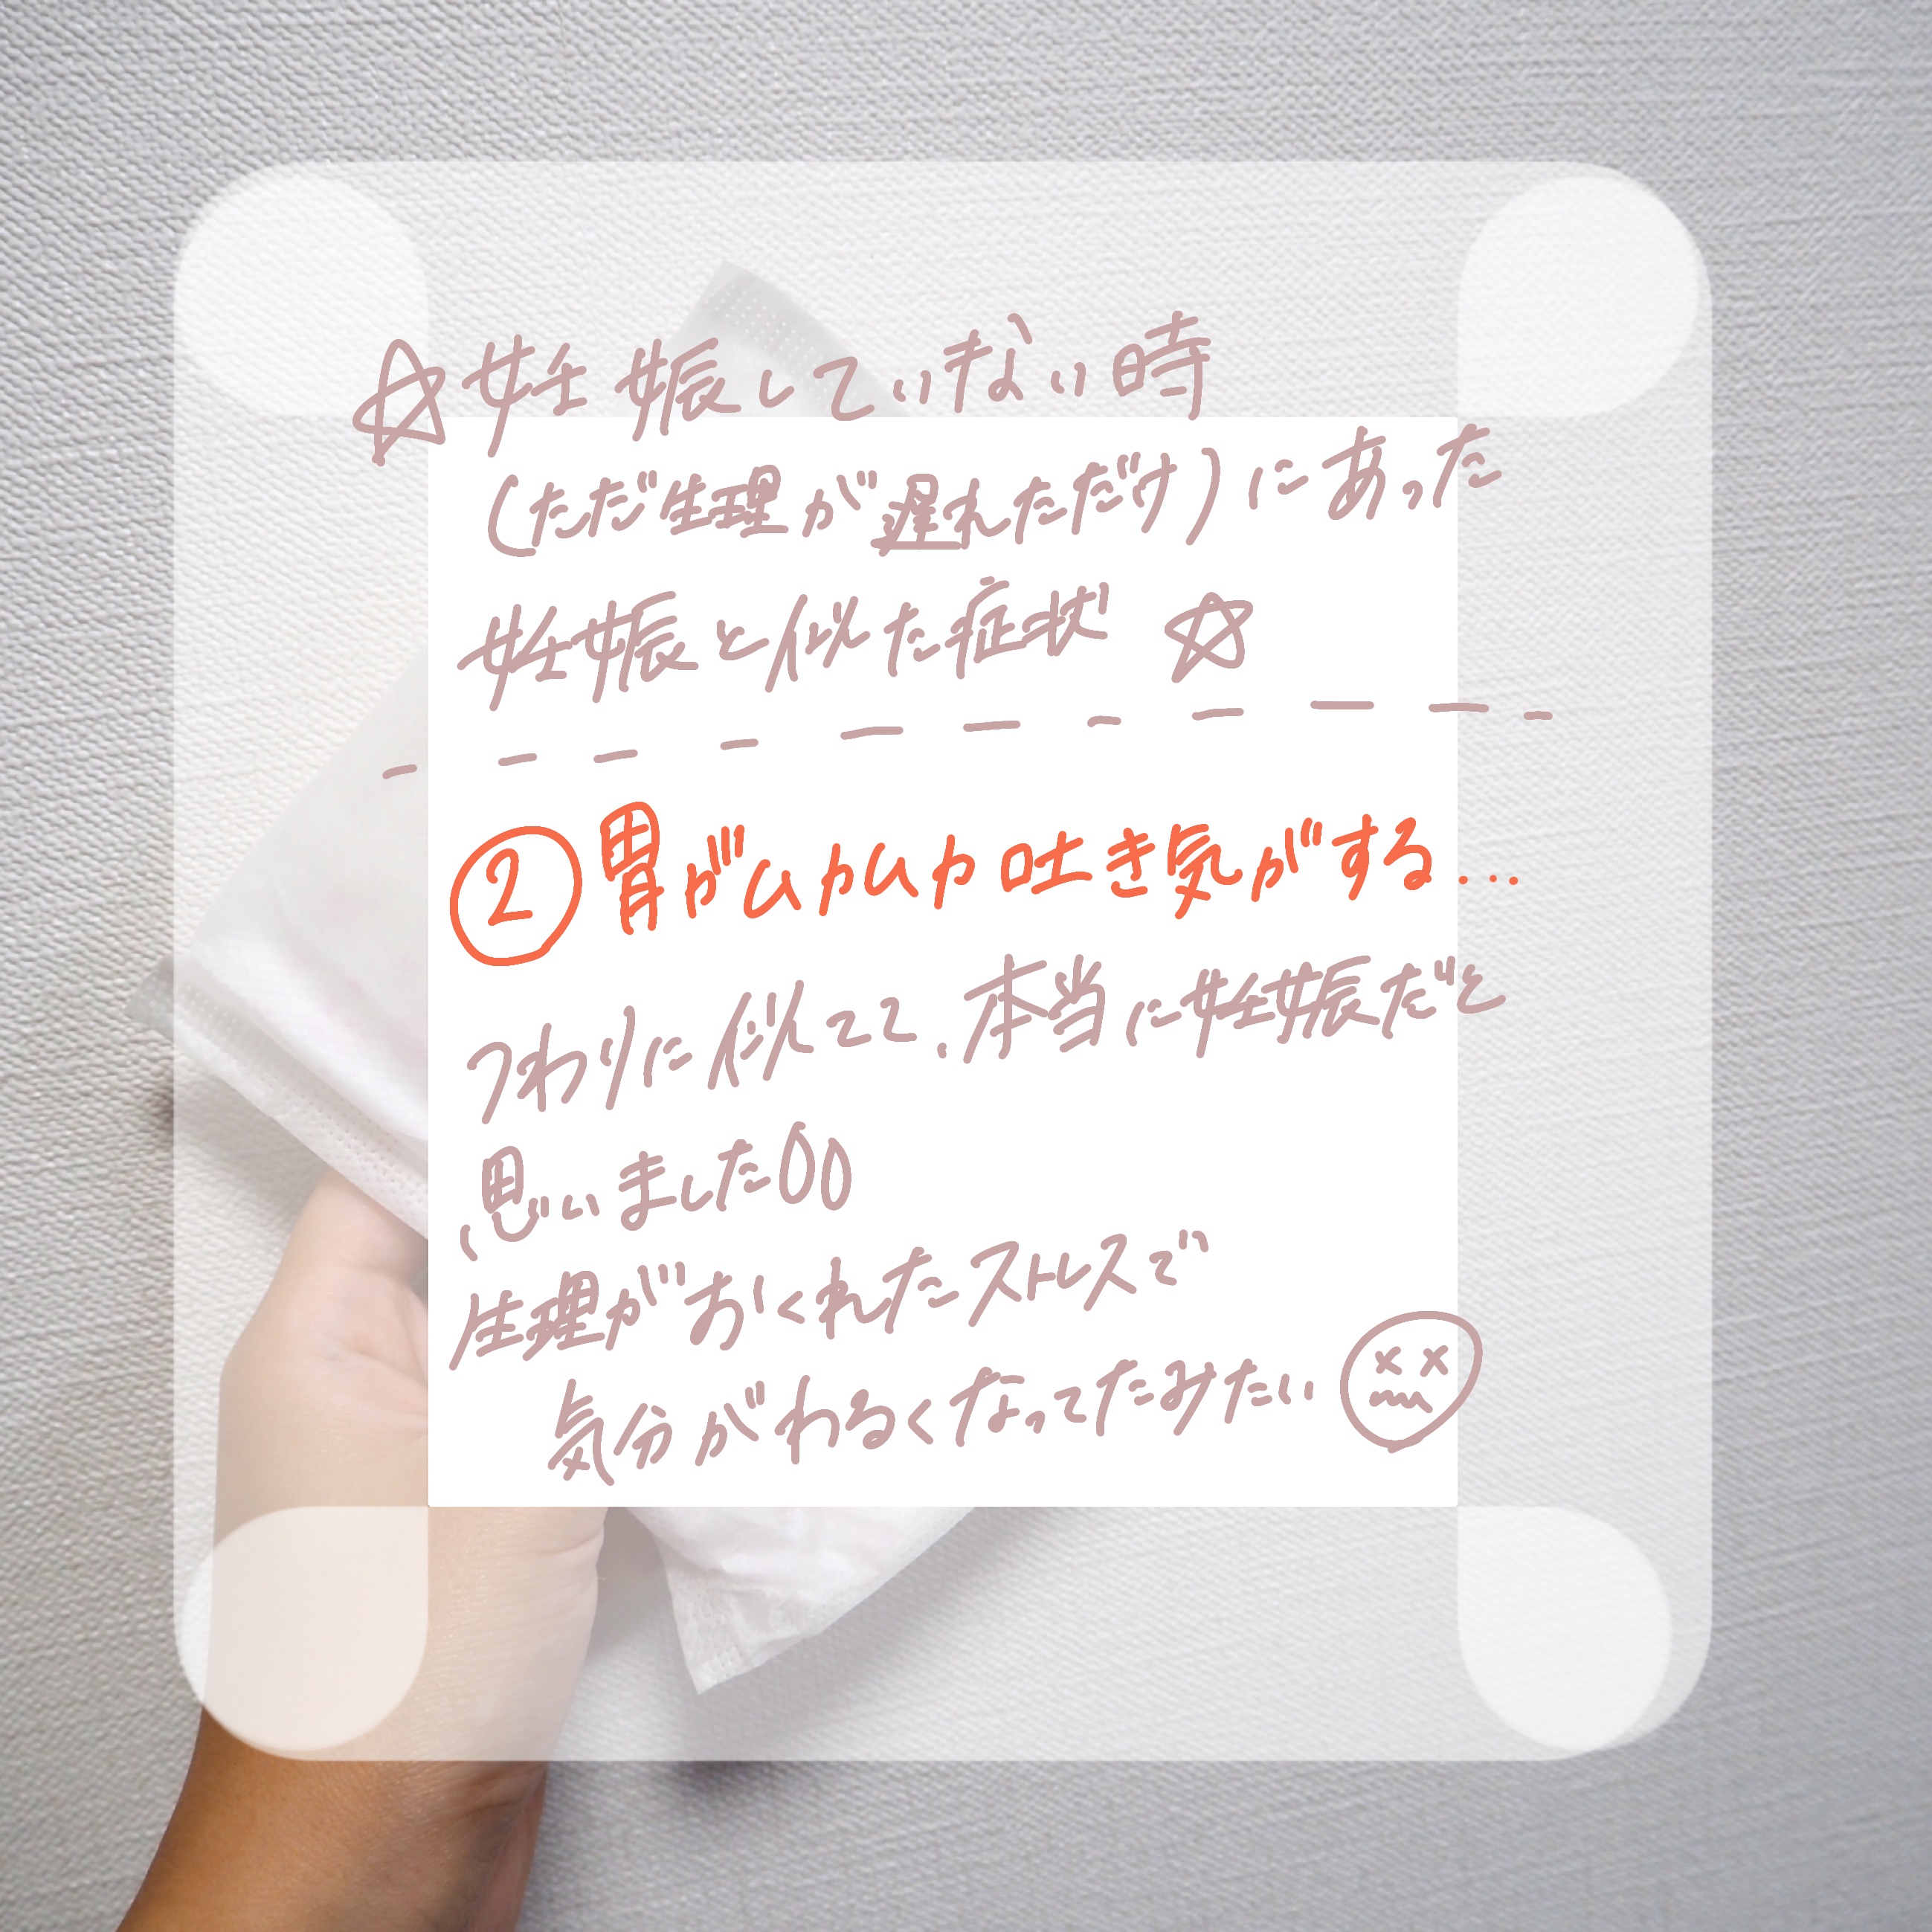 ☆妊娠していない時
(ただ生理が遅れただけ)にあった
妊娠と似た症状 ☆
② 胃がムカムカ吐き気がする...
つわりに似てて、本当に妊娠だと
思いました00
生理がおくれたストレスで
気分がわるくなってたみたい